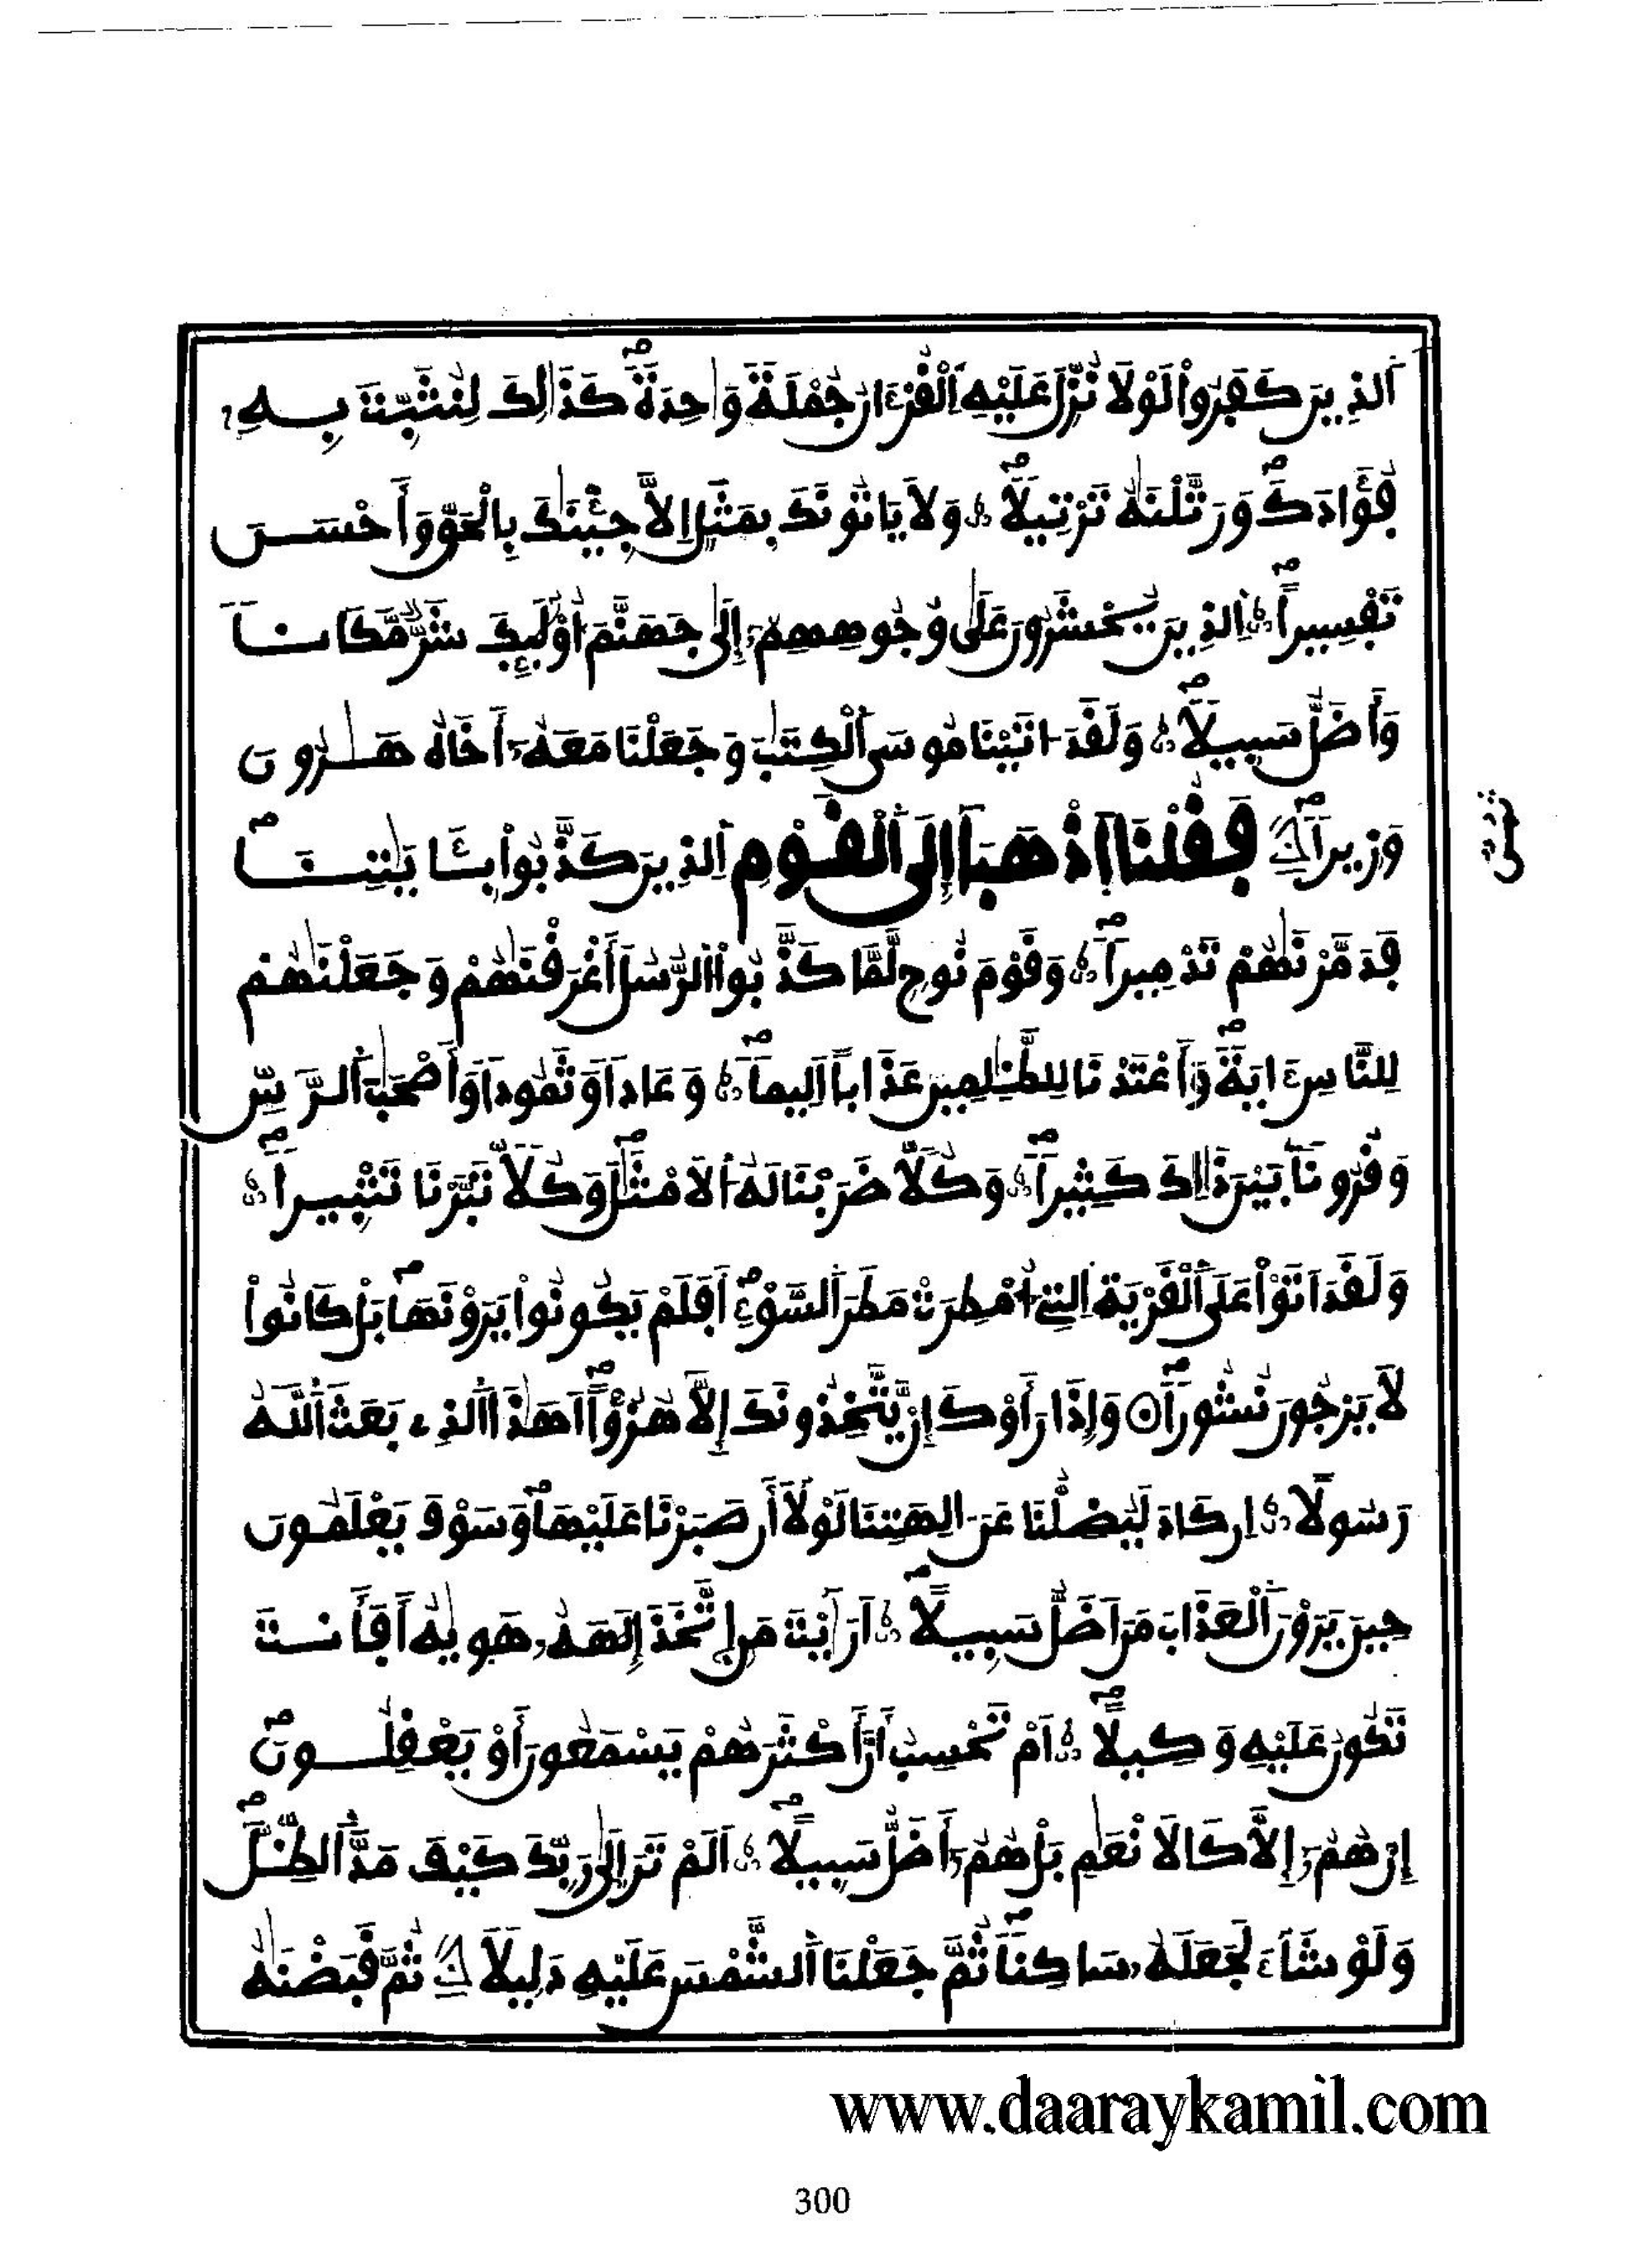 اَلذِينَ كَفَرُواْ لَوْلَا نُزِّلَ عَلَيْهِ اِ۬لْقُرْءَانُ جُمْلَةً وَٰحِدَةً كَذَٰلِكَ لِنُثَبِّتَ بِهِۦ
فُؤَادَكَ وَرَتَّلْنَٰهُ تَرْتِيلًا وَلَا يَاتُونَكَ بِمَثَلٍ اِلَّا جِئْنَٰكَ بِالْحَقِّ وَأَحْسَنَ
تَفْسِيراً اِ۬لذِينَ يُحْشَرُونَ عَلَىٰ وُجُوهِهِمُۥٓ إِلَىٰ جَهَنَّمَ أُوْلَٰٓئِكَ شَرٌّ مَّكَاناً
وَأَضَلُّ سَبِيلًا وَلَقَدَ اتَيْنَا مُوسَى اَ۬لْكِتَٰبَ وَجَعَلْنَا مَعَهُۥٓ أَخَاهُ هَٰرُونَ
وَزِيراً فَقُلْنَا اَ۪ذْهَبَآ إِلَى اَ۬لْقَوْمِ اِ۬لذِينَ كَذَّبُواْ بِـَٔايَٰتِنَا
فَدَمَّرْنَٰهُمْ تَدْمِيراً وَقَوْمَ نُوحٍ لَّمَّا كَذَّبُواْ اُ۬لرُّسُلَ أَغْرَقْنَٰهُمْ وَجَعَلْنَٰهُمْ
لِلنَّاسِ ءَايَةً وَأَعْتَدْنَا لِلظَّٰلِمِينَ عَذَاباً اَلِيماً وَعَاداً وَثَمُوداً وَأَصْحَٰبَ اَ۬لرَّسِّ
وَقُرُوناَۢ بَيْنَ ذَٰلِكَ كَثِيراً وَكُلّاً ضَرَبْنَا لَهُ اُ۬لَامْثَٰلَ وَكُلّاً تَبَّرْنَا تَتْبِيراً
وَلَقَدَ اَتَوْاْ عَلَى اَ۬لْقَرْيَةِ اِ۬لتِےٓ أُمْطِرَتْ مَطَرَ اَ۬لسَّوْءِ اَفَلَمْ يَكُونُواْ يَرَوْنَهَا بَلْ كَانُواْ
لَا يَرْجُونَ نُشُوراً وَإِذَا رَأَوْكَ إِنْ يَّتَّخِذُونَكَ إِلَّا هُزُؤاً اَهَٰذَا اَ۬لذِے بَعَثَ اَ۬للَّهُ
رَسُولًا اِن كَادَ لَيُضِلُّنَا عَنَ اٰلِهَتِنَا لَوْلَآ أَن صَبَرْنَا عَلَيْهَا وَسَوْفَ يَعْلَمُونَ
حِينَ يَرَوْنَ اَ۬لْعَذَابَ مَنَ اَضَلُّ سَبِيلًا اَرَٰٓيْتَ مَنِ اِ۪تَّخَذَ إِلَٰهَهُۥ هَوَيٰهُ أَفَأَنتَ
تَكُونُ عَلَيْهِ وَكِيلًا اَمْ تَحْسِبُ أَنَّ أَكْثَرَهُمْ يَسْمَعُونَ أَوْ يَعْقِلُونَ
إِنْ هُمُۥٓ إِلَّا كَالَانْعَٰمِ بَلْ هُمُۥٓ أَضَلُّ سَبِيلًا اَلَمْ تَرَ إِلَىٰ رَبِّكَ كَيْفَ مَدَّ اَ۬لظِّلَّ
وَلَوْ شَآءَ لَجَعَلَهُۥ سَاكِناً ثُمَّ جَعَلْنَا اَ۬لشَّمْسَ عَلَيْهِ دَلِيلًا ثُمَّ قَبَضْنَٰهُ
www.daaraykamil.com
300